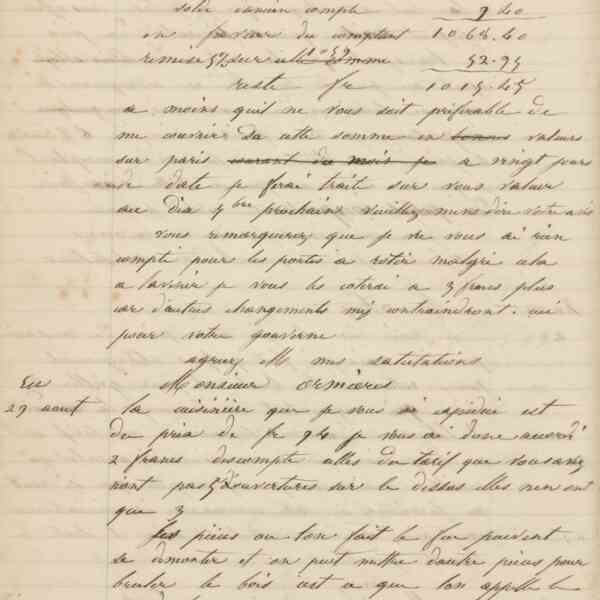 solde ancien compte 9 20
en faveur du comptant 1068.40
remise 5% sur cette somme 1059 52.95
reste fr 1015.45
a moins quil ne vous soit preferable de
me couvrir da cette somme en bonnes valeurs
sur paris courant du mois je a vingt jours
de date je ferai trait sur vous valeur
au Dix 7bre prochain veuillez men dire votre avis
vous remarquerez que je ne vous ai rien
compté pour les portes a rotir malgré cela
a lavenir je vous les coterai a 3 francs plus
car dautres changements my contraindront.
pour votre gouverne
agreez M mes salutations
Monsieur ormieres
29 aout la cuisiniere que je vous ai expedié est
du prix de fr 94 je vous ai donc accordé
2 francs descompte celles du tarif que vous avez
nont pas 5 ouvertures sur le dessus elles nen ont
que 3
les pieces ou lon fait le feu peuvent
se demonter et on peut mettre dautre pieces pour
bruler le bois cest a que lon appelle le